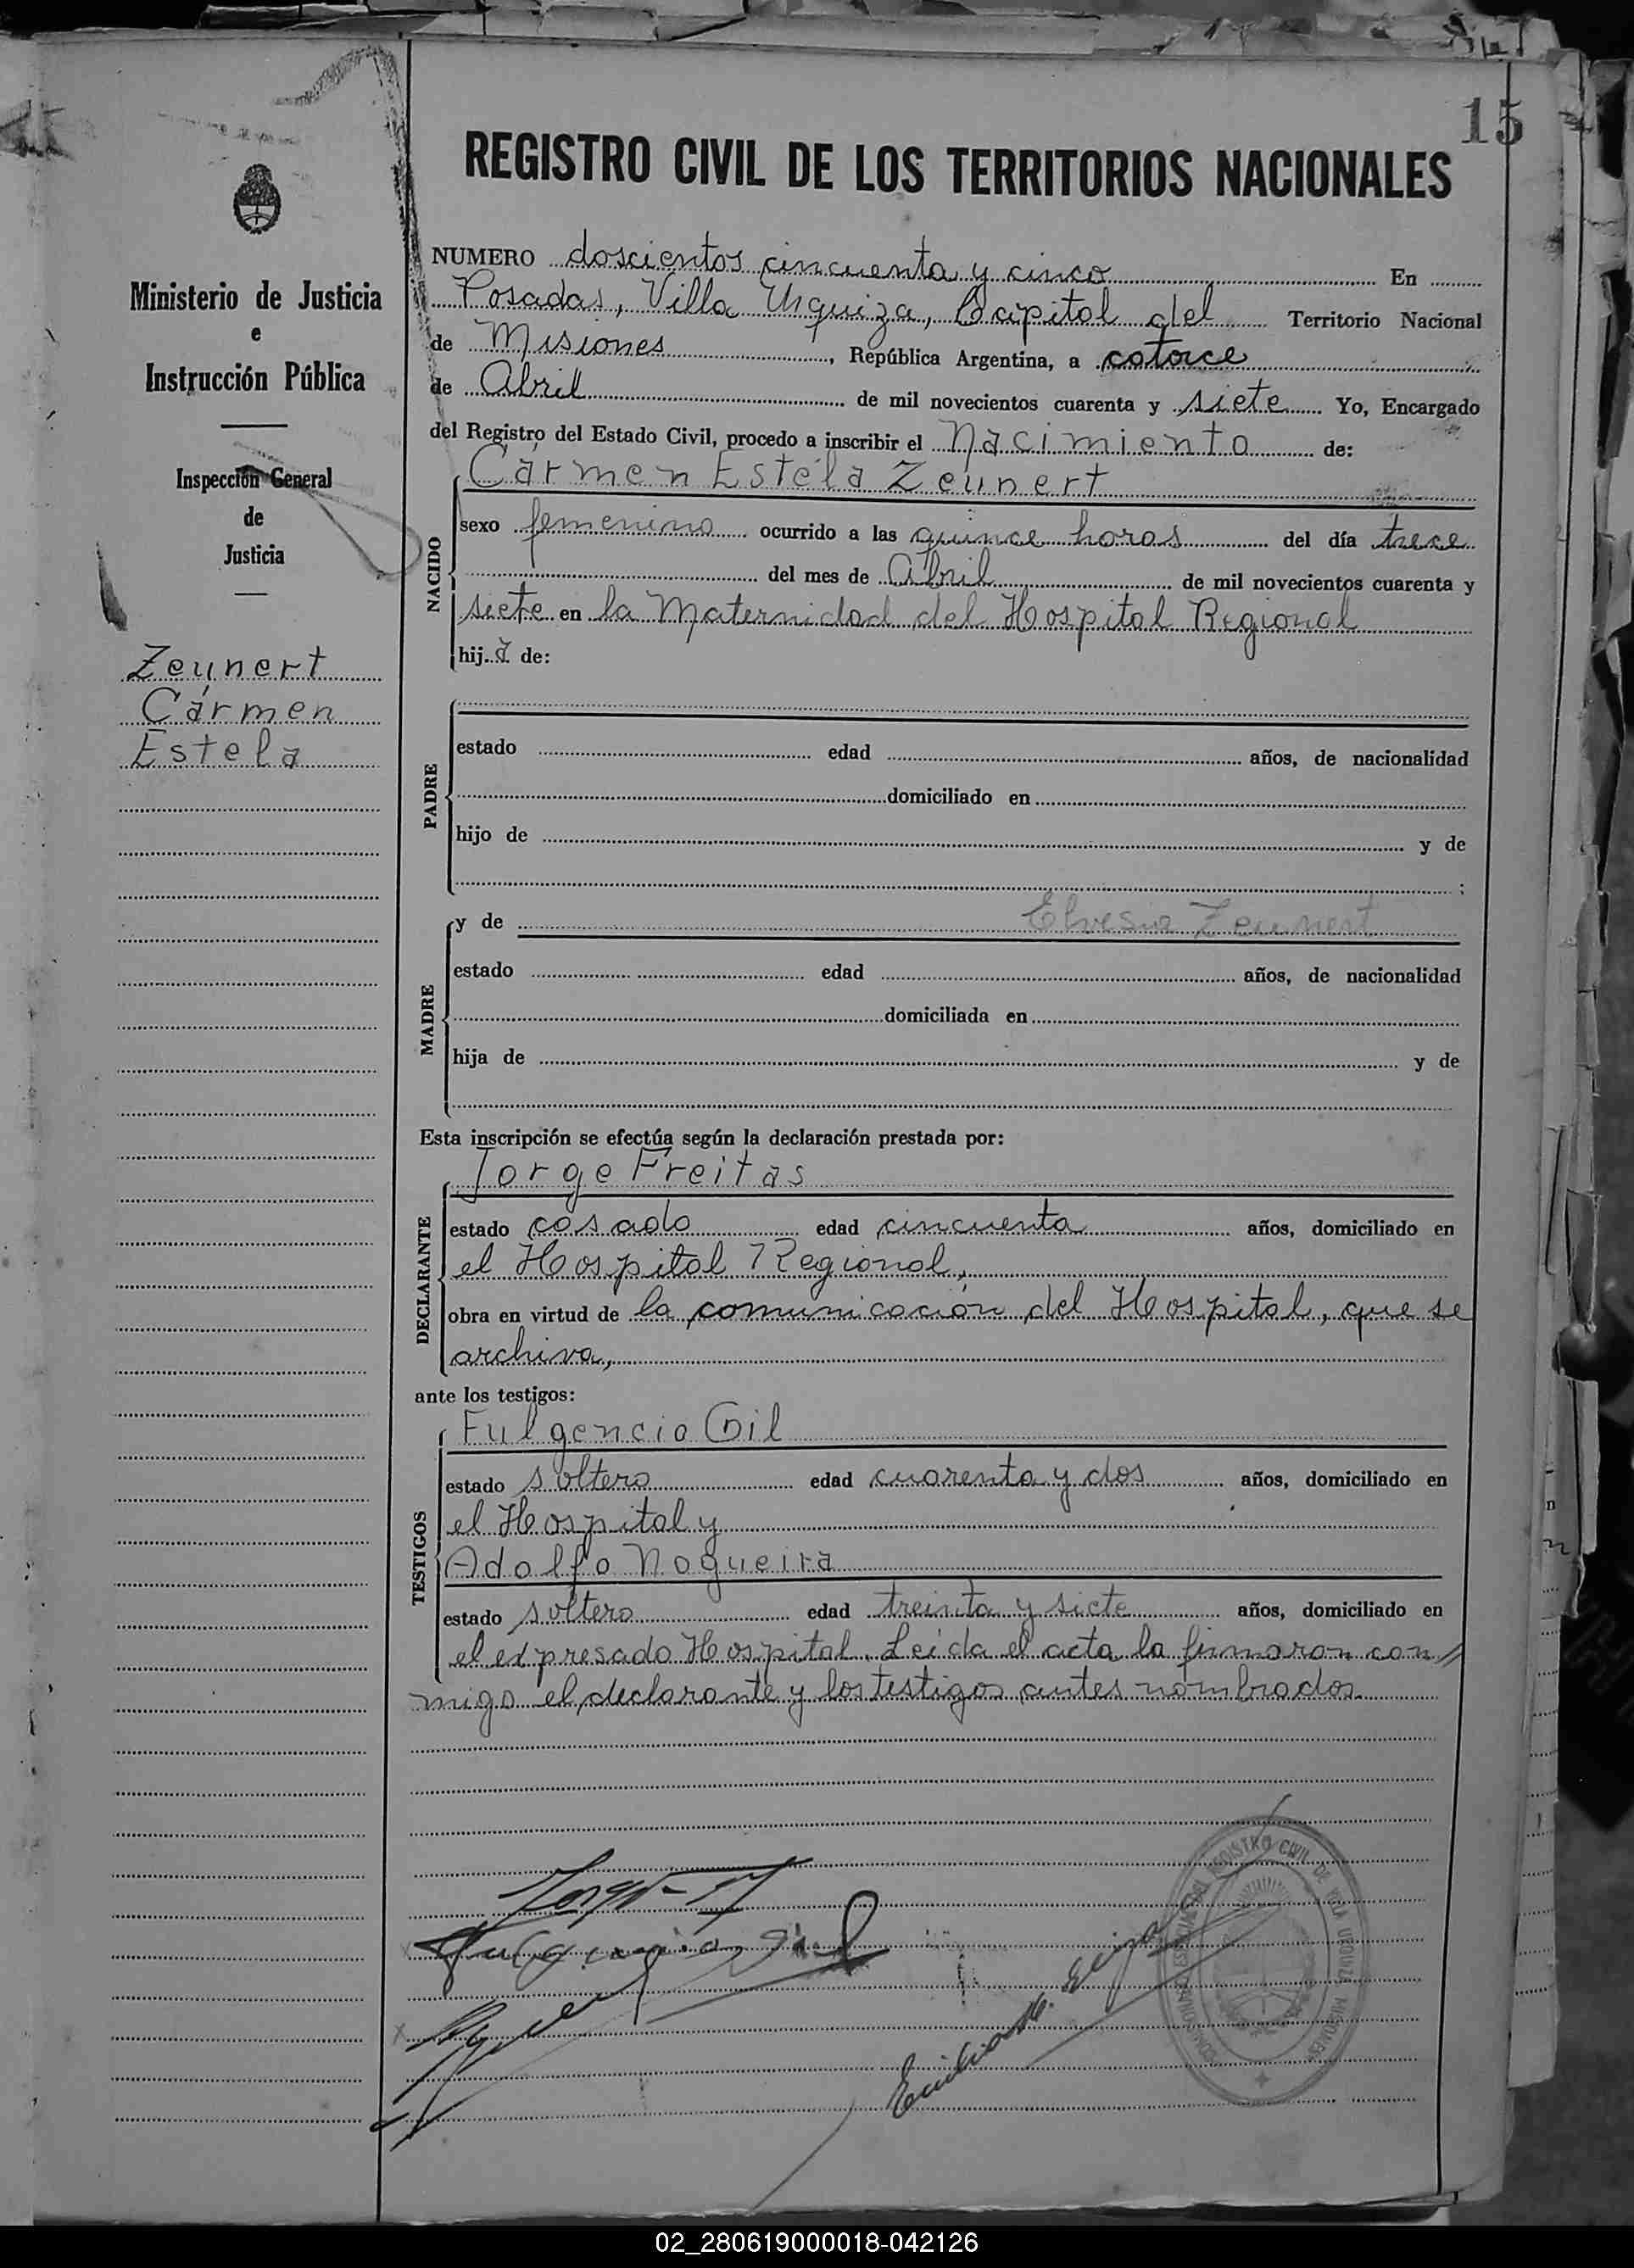 15
REGISTRO CIVIL DE LOS TERRITORIOS NACIONALES
Ministerio de Justicia
e
Instrucción Pública
Inspección General
de
Justicia
Zeunert
Cármen
Estela
NUMERO doscientos cincuenta y cinco En
Posadas, Villa Urquiza, Capital del Territorio Nacional
de Misiones, República Argentina, a catorce
de Abril de mil novecientos cuarenta y siete Yo, Encargado
del Registro del Estado Civil, procedo a inscribir el Nacimiento de:
Cármen Estela Zeunert
NACIDO
sexo femenino ocurrido a las quince horas del día trece
del mes de Abril de mil novecientos cuarenta y
siete en la Maternidad del Hospital Regional
hija de:
PADRE
estado edad años, de nacionalidad
domiciliado en
hijo de y de
;
MADRE
y de Zeunert
estado edad años, de nacionalidad
domiciliada en
hija de y de
Esta inscripción se efectúa según la declaración prestada por:
Jorge Freitas
DECLARANTE
estado casado edad cincuenta años, domiciliado en
el Hospital Regional,
obra en virtud de la comunicación del Hospital, que se
archiva,
ante los testigos:
Fulgencio Gil
TESTIGOS
estado soltero edad cuarenta y dos años, domiciliado en
el Hospital y
Adolfo Nogueira
estado soltero edad treinta y siete años, domiciliado en
el expresado Hospital. Leída el acta la firmaron con//
migo el declarante y los testigos antes nombrados
Fulgencio Gil
REGISTRO CIVIL DE VILLA URQUIZA MISIONES
02_280619000018-042126